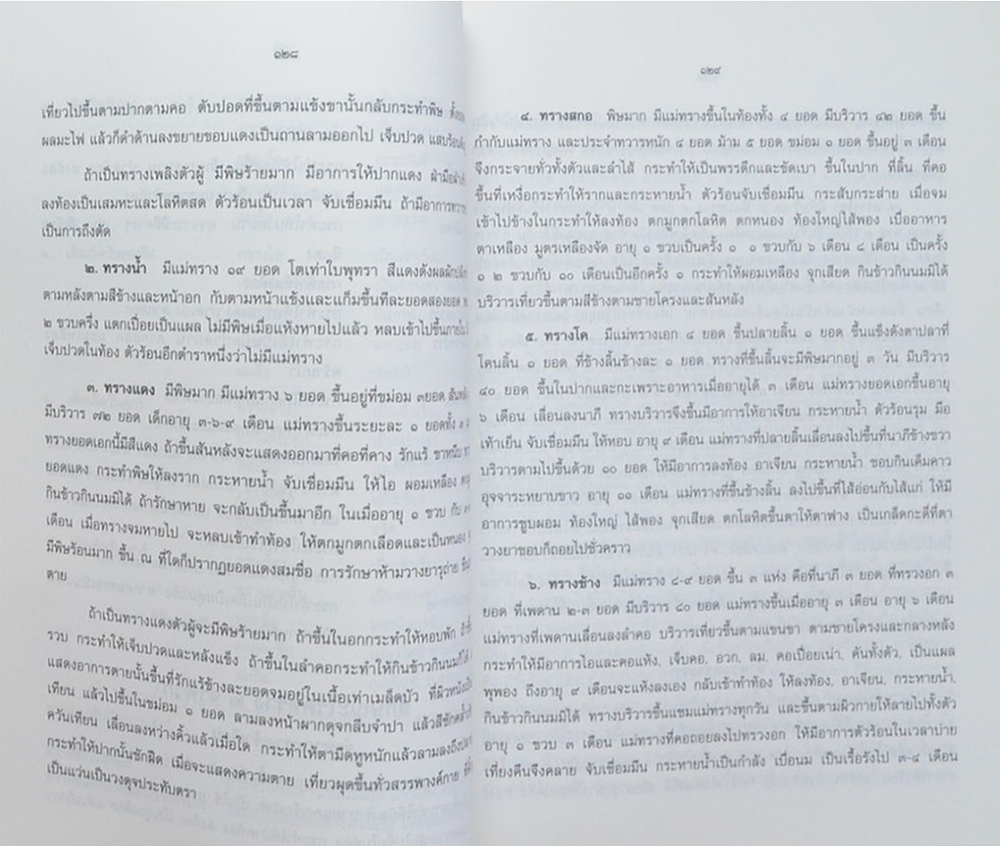 ๑๒๘
เที่ยวไปขึ้นตามปากตามคอ ดับปอดที่ขึ้นตามแข้งขานั้นกลับกระทำพิษ
ผลมะไฟ แล้วก็ดำด้านลงขยายขอบแดงเป็นถานลามออกไป เจ็บปวด
ถ้าเป็นทรางเพลิงตัวผู้ มีพิษร้ายมาก มีอาการให้ปากแดง
ลงท้องเป็นเสมหะและโลหิตสด ตัวร้อนเป็นเวลา จับเชื่อมมึน ถ้ามีอาการ
เป็นการถึงตัด
๒. ทรางน้ำ มีแม่ทราง ๑๙ ยอด โตเท่าใบพุทรา สีแดงดังผล
ตามหลังตามสีข้างและหน้าอก กับตามหน้าแข้งและแก้มขึ้นทีละยอดสองยอด
๒ ขวบครึ่ง แตกเปื่อยเป็นแผล ไม่มีพิษเมื่อแห้งหายไปแล้ว หลบเข้าไปขึ้นภายใน
เจ็บปวดในท้อง ตัวร้อนอีกตำราหนึ่งว่าไม่มีแม่ทราง
๓. ทรางแดง มีพิษมาก มีแม่ทราง ๖ ยอด ขึ้นอยู่ที่ขม่อม ๓ยอด
มีบริวาร ๗๒ ยอด เด็กอายุ ๓-๖-๙ เดือน แม่ทรางขึ้นระยะละ ๑ ยอดทั้ง
ทรางยอดเอกนี้มีสีแดง ถ้าขึ้นสันหลังจะแสดงออกมาที่คอที่คาง รักแร้
ยอดแดง กระทำพิษให้ลงราก กระหายน้ำ จับเชื่อมมึน ให้ไอ ผอมเหลือง
กินข้าวกินนมมิได้ ถ้ารักษาหาย จะกลับเป็นขึ้นมาอีก ในเมื่ออายุ ๑ ขวบ กับ
เดือน เมื่อทรางจมหายไป จะหลบเข้าทำท้อง ให้ตกมูกตกเลือดและเป็นหนอง
มีพิษร้อนมาก ขึ้น ณ ที่ใดก็ปรากฏยอดแดงสมชื่อ การรักษาห้ามวางยารุถ่าย
ตาย
ถ้าเป็นทรางแดงตัวผู้จะมีพิษร้ายมาก ถ้าขึ้นในอกกระทำให้หอบพัก
รวบ กระทำให้เจ็บปวดและหลังแข็ง ถ้าขึ้นในลำคอกระทำให้กินข้าวกินนมมิได้
แสดงอาการตายนั้นขึ้นที่รักแร้ข้างละยอดจมอยู่ในเนื้อเท่าเมล็ดบัว ที่ผิวหนัง
เทียน แล้วไปขึ้นในขม่อม ๑ ยอด ลามลงหน้าผากดุจกลีบจำปา แล้วสีซีกคล้ำ
ควันเทียน เลื่อนลงหว่างคิ้วแล้วเมื่อใด กระทำให้ตามืดหูหนักแล้วลามลงถึง
กระทำให้ปากนั้นชักฝิด เมื่อจะแสดงความตาย เที่ยวผุดขึ้นทั่วสรรพางค์กาย
เป็นแว่นเป็นวงดุจประทับตรา
๑๒๙
๔. ทรางสกอ พิษมาก มีแม่ทรางขึ้นในท้องทั้ง ๔ ยอด มีบริวาร ๔๒ ยอด ขึ้น
กำกับแม่ทราง และประจำทวารหนัก ๔ ยอด ม้าม ๕ ยอด ขม่อม ๑ ยอด ขึ้นอยู่ ๓ เดือน
จึงกระจายทั่วทั้งตัวและลำไส้ กระทำให้เป็นพรรดึกและขัดเบา ขึ้นในปาก ที่ลิ้น ที่คอ
ขึ้นที่เหงือกระทำให้รากและกระหายน้ำ ตัวร้อนจับเชื่อมมึน กระสับกระส่าย เมื่อจม
เข้าไปข้างในกระทำให้ลงท้อง ตกมูกตกโลหิต ตกหนอง ท้องใหญ่ไส้พอง เบื่ออาหาร
ตาเหลือง มูตรเหลืองจัด อายุ ๑ ขวบเป็นครั้ง ๑ ๑ ขวบกับ ๖ เดือน ๘ เดือน เป็นครั้ง
๑ ๒ ขวบกับ ๑๐ เดือนเป็นอีกครั้ง ๑ กระทำให้ผอมเหลือง จุกเสียด กินข้าวกินนมมิได้
บริวารเที่ยวขึ้นตามสีข้างตามชายโครงและสันหลัง
๕. ทรางโค มีแม่ทรางเอก ๔ ยอด ขึ้นปลายลิ้น ๑ ยอด ขึ้นแข็งดังตาปลาที่
โคนลิ้น ๑ ยอด ที่ข้างลิ้นข้างละ ๑ ยอด ทรางที่ขึ้นลิ้นจะมีพิษมากอยู่ ๓ วัน มีบริวาร
๔๐ ยอด ขึ้นในปากและกะเพราะอาหารเมื่ออายุได้ ๓ เดือน แม่ทรางยอดเอกขึ้นอายุ
๖ เดือน เลื่อนลงนาภี ทรางบริวารจึงขึ้นมีอาการให้อาเจียน กระหายน้ำ ตัวร้อนรุม มือ
เท้าเย็น จับเชื่อมมึน ให้หอบ อายุ ๙ เดือน แม่ทรางที่ปลายลิ้นเลื่อนลงไปขึ้นที่นาภีข้างขวา
บริวารตามไปขึ้นด้วย ๑๐ ยอด ให้มีอาการลงท้อง อาเจียน กระหายน้ำ ชอบกินเค็มคาว
อุจจาระหยาบขาว อายุ ๑๑ เดือน แม่ทรางที่ขึ้นข้างลิ้น ลงไปขึ้นที่ไส้อ่อนกับไส้แก่ ให้มี
อาการซูบผอม ท้องใหญ่ ไส้พอง จุกเสียด ตกโลหิตขึ้นตาให้ตาฟาง เป็นเกล็ดกะดี่ที่ตา
วางยาชอบก็ถอยไปชั่วคราว
๖. ทรางช้าง มีแม่ทราง ๘-๙ ยอด ขึ้น ๓ แห่ง คือที่นาภี ๓ ยอด ที่ทรวงอก ๓
ยอด ที่เพดาน ๒-๓ ยอด มีบริวาร ๘๐ ยอด แม่ทรางขึ้นเมื่ออายุ ๓ เดือน อายุ ๖ เดือน
แม่ทรางที่เพดานเลื่อนลงลำคอ บริวารเที่ยวขึ้นตามแขนขา ตามชายโครงและกลางหลัง
กระทำให้มีอาการไอและคอแห้ง, เจ็บคอ, อวก, ลม, คอเปื่อยเน่า, คันทั้งตัว, เป็นแผล
พุพอง ถึงอายุ ๙ เดือนจะแห้งลงเอง กลับเข้าทำท้อง ให้ลงท้อง, อาเจียน, กระหายน้ำ,
กินข้าวกินนมมิได้ ทรางบริวารขึ้นแซมแม่ทรางทุกวัน และขึ้นตามผิวกายให้ลายไปทั้งตัว
อายุ ๑ ขวบ ๓ เดือน แม่ทรางที่คอถอยลงไปทรวงอก ให้มีอาการตัวร้อนในเวลาบ่าย
เที่ยงคืนจึงคลาย จับเชื่อมมึน กระหายน้ำเป็นกำลัง เบื่อนม เป็นเรื้อรังไป ๓-๔ เดือน